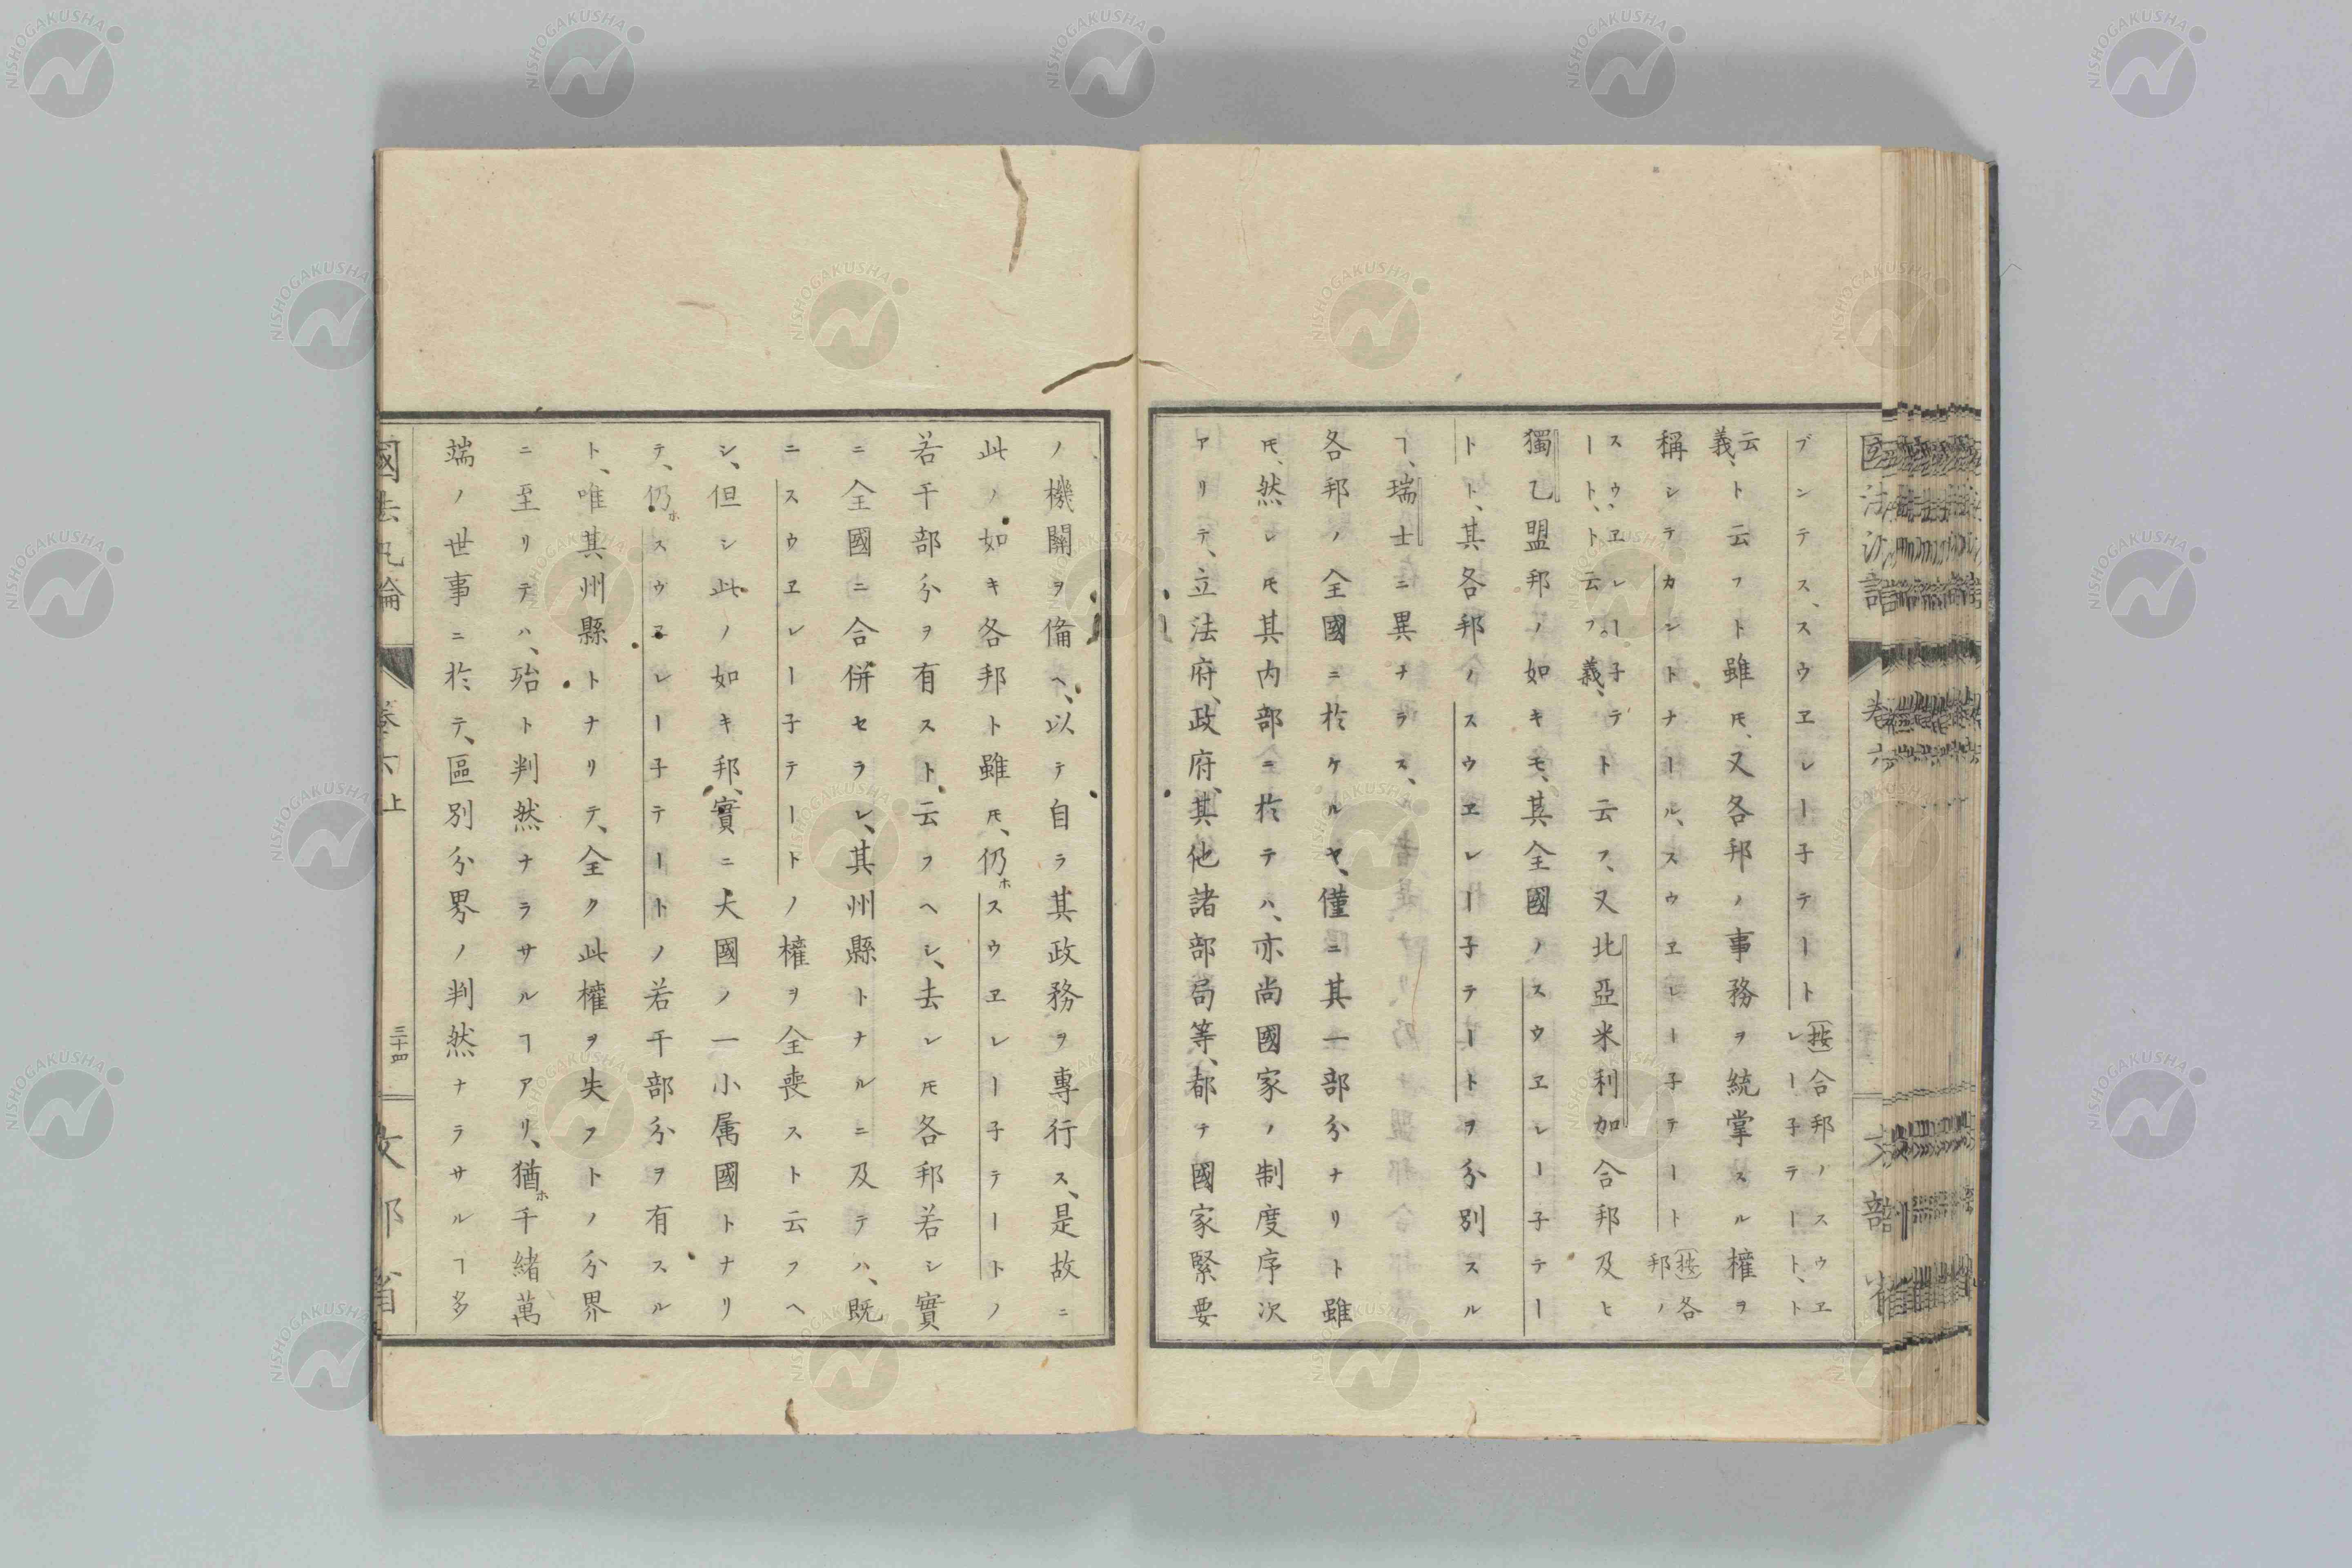 ブンテス、スウヱレーネテート〔按〕合邦ノスウヱレーネテート、ト
云義、ト云フト雖𪜈、又各邦ノ事務ヲ統掌スル權ヲ
稱シテカントナール、スウヱレーネテート〔按〕各邦ノ
スウヱレーネテート、ト云フ。義、ト云フ、又北亞米利加合邦及ヒ
獨乙盟邦ノ如キモ、其全國ノスウヱレーネテー
トト、其各邦ノスウヱレーネテートヲ分別スル
ヿ、瑞士ニ異ナラス、
各邦ノ全國ニ於ケルヤ、僅ニ其一部分ナリト雖
𪜈、然レ𪜈其内部ニ於テハ、亦尚國家ノ制度序次
アリテ、立法府、政府、其他諸部局等、都テ國家緊要
ノ機關ヲ備ヘ、以テ自ラ其政務ヲ專行ス、是故ニ
此ノ如キ各邦ト雖𪜈、仍ホスウヱレーネテートノ
若干部分ヲ有スト、云フヘシ、去レ𪜈各邦若シ實
ニ全國ニ合併セラレ、其州縣トナルニ及テハ、既
ニスウヱレーネテートノ權ヲ全喪スト云フヘ
シ、但シ此ノ如キ邦、實ニ大國ノ一小属國トナリ
テ、仍ホスウヱレーネテートノ若干部分ヲ有スル
ト、唯其州縣トナリテ、全ク此權ヲ失フトノ分界
ニ至リテハ、殆ト判然ナラサルヿアリ、猶ホ千緒萬
端ノ世事ニ於テ、區別分界ノ判然ナラサルヿ多
國法汎論
卷六上
三十四
文部省